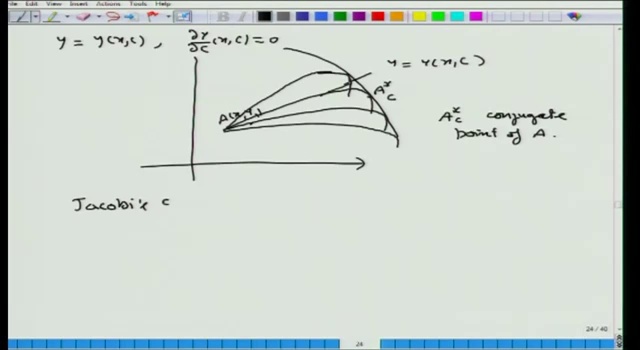 File Edit View Insert Actions Tools Help
y = y(x,c) , ∂y/∂c (x,c) = 0
y = y(x,c)
A*c
A*c conjugate
point of A.
Jacobi's c
24 / 40
24